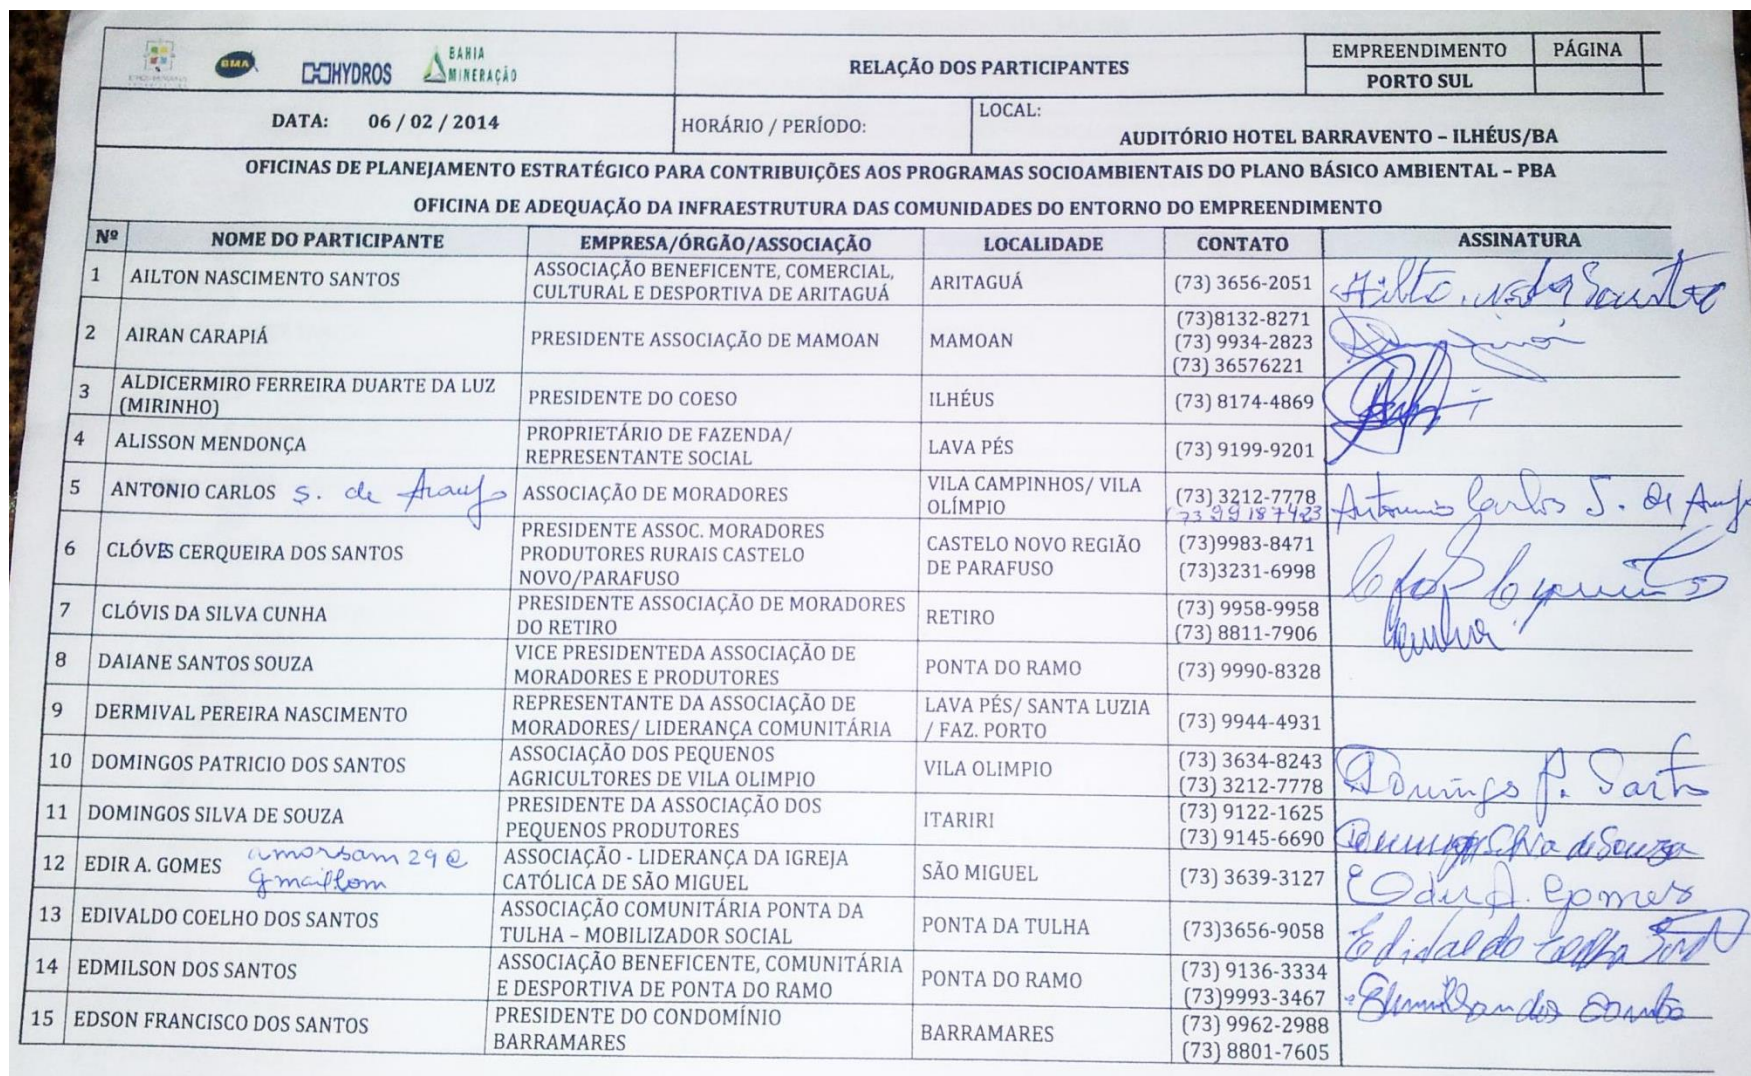 BMA
HYDROS
BAHIA
MINERAÇÃO
RELAÇÃO DOS PARTICIPANTES
EMPREENDIMENTO PÁGINA
PORTO SUL
DATA: 06 / 02 / 2014
HORÁRIO / PERÍODO:
LOCAL:
AUDITÓRIO HOTEL BARRAVENTO – ILHÉUS/BA
OFICINAS DE PLANEJAMENTO ESTRATÉGICO PARA CONTRIBUIÇÕES AOS PROGRAMAS SOCIOAMBIENTAIS DO PLANO BÁSICO AMBIENTAL – PBA
OFICINA DE ADEQUAÇÃO DA INFRAESTRUTURA DAS COMUNIDADES DO ENTORNO DO EMPREENDIMENTO
Nº NOME DO PARTICIPANTE EMPRESA/ÓRGÃO/ASSOCIAÇÃO LOCALIDADE CONTATO ASSINATURA
1 AILTON NASCIMENTO SANTOS
ASSOCIAÇÃO BENEFICENTE, COMERCIAL,
CULTURAL E DESPORTIVA DE ARITAGUÁ
ARITAGUÁ
(73) 3656-2051
2 AIRAN CARAPIÁ
PRESIDENTE ASSOCIAÇÃO DE MAMOAN
MAMOAN
(73)8132-8271
(73) 9934-2823
(73) 36576221
3 ALDICERMIRO FERREIRA DUARTE DA LUZ
(MIRINHO)
PRESIDENTE DO COESO
ILHÉUS
(73) 8174-4869
4 ALISSON MENDONÇA
PROPRIETÁRIO DE FAZENDA/
REPRESENTANTE SOCIAL
LAVA PÉS
(73) 9199-9201
5 ANTONIO CARLOS S. de Araujo
ASSOCIAÇÃO DE MORADORES
VILA CAMPINHOS/ VILA
OLÍMPIO
(73) 3212-7778
(73 99187423
Antonio Carlos S. de Araujo
6 CLÓVES CERQUEIRA DOS SANTOS
PRESIDENTE ASSOC. MORADORES
PRODUTORES RURAIS CASTELO
NOVO/PARAFUSO
CASTELO NOVO REGIÃO
DE PARAFUSO
(73)9983-8471
(73)3231-6998
7 CLÓVIS DA SILVA CUNHA
PRESIDENTE ASSOCIAÇÃO DE MORADORES
DO RETIRO
RETIRO
(73) 9958-9958
(73) 8811-7906
8 DAIANE SANTOS SOUZA
VICE PRESIDENTEDA ASSOCIAÇÃO DE
MORADORES E PRODUTORES
PONTA DO RAMO
(73) 9990-8328
9 DERMIVAL PEREIRA NASCIMENTO
REPRESENTANTE DA ASSOCIAÇÃO DE
MORADORES/ LIDERANÇA COMUNITÁRIA
LAVA PÉS/ SANTA LUZIA
/ FAZ. PORTO
(73) 9944-4931
10 DOMINGOS PATRICIO DOS SANTOS
ASSOCIAÇÃO DOS PEQUENOS
AGRICULTORES DE VILA OLIMPIO
VILA OLIMPIO
(73) 3634-8243
(73) 3212-7778
Domingos P. Santos
11 DOMINGOS SILVA DE SOUZA
PRESIDENTE DA ASSOCIAÇÃO DOS
PEQUENOS PRODUTORES
ITARIRI
(73) 9122-1625
(73) 9145-6690
Domingos Silva de Souza
12 EDIR A. GOMES
amorsam29@
gmail.com
ASSOCIAÇÃO - LIDERANÇA DA IGREJA
CATÓLICA DE SÃO MIGUEL
SÃO MIGUEL
(73) 3639-3127
Edir A. Gomes
13 EDIVALDO COELHO DOS SANTOS
ASSOCIAÇÃO COMUNITÁRIA PONTA DA
TULHA – MOBILIZADOR SOCIAL
PONTA DA TULHA
(73)3656-9058
Edivaldo Coelho
14 EDMILSON DOS SANTOS
ASSOCIAÇÃO BENEFICENTE, COMUNITÁRIA
E DESPORTIVA DE PONTA DO RAMO
PONTA DO RAMO
(73) 9136-3334
(73)9993-3467
Edmilson dos Santos
15 EDSON FRANCISCO DOS SANTOS
PRESIDENTE DO CONDOMÍNIO
BARRAMARES
BARRAMARES
(73) 9962-2988
(73) 8801-7605